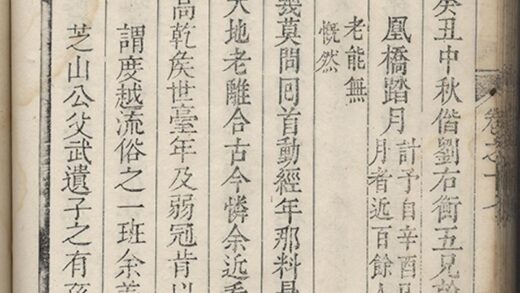 癸丑中秋偕劉右衡五兄
鳳橋踏月
計予自辛酉
月者近百餘人
老能無
慨然
義莫問囘首動經年那料
大地老離合古今憐余近
高乾矣世臺年及弱冠肯以
謂度越流俗之一班余
芝山公父武遺子之有
卷之十